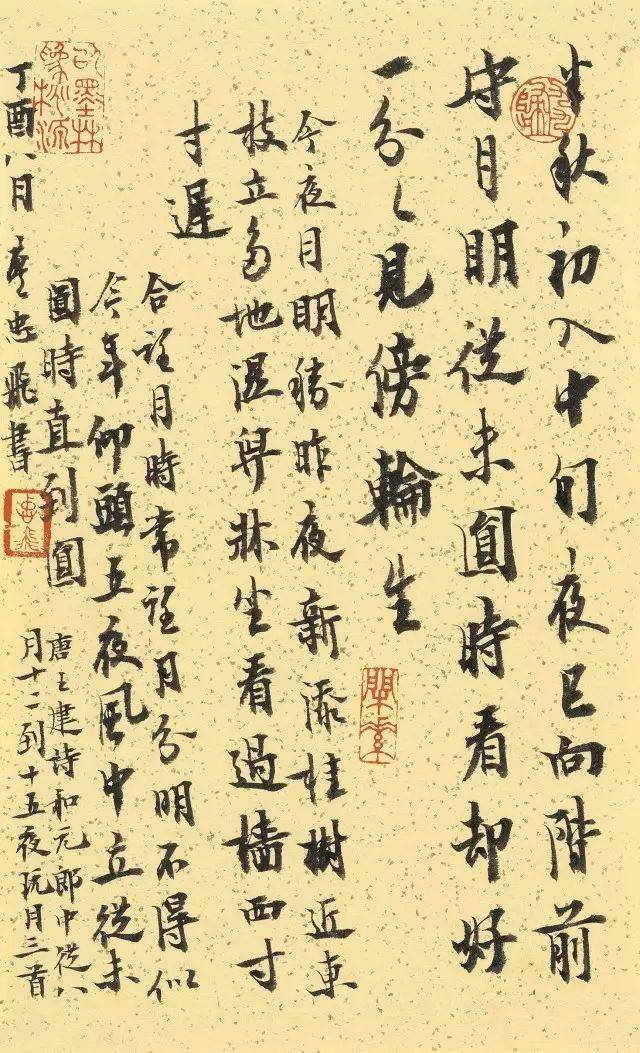 半秋初入中旬夜已向階前
守月明從未圓時看却好
一分〻見傍輪生
今夜月明勝昨夜新添桂樹近東
枝立多地濕舁牀坐看過牆西寸
寸遲
合望月時常望月分明不得似
今年仰頭五夜風中立從未
圓時直到圓
唐王建詩和元郎中從八
月十二到十五夜玩月三首
丁酉八月忠飛書